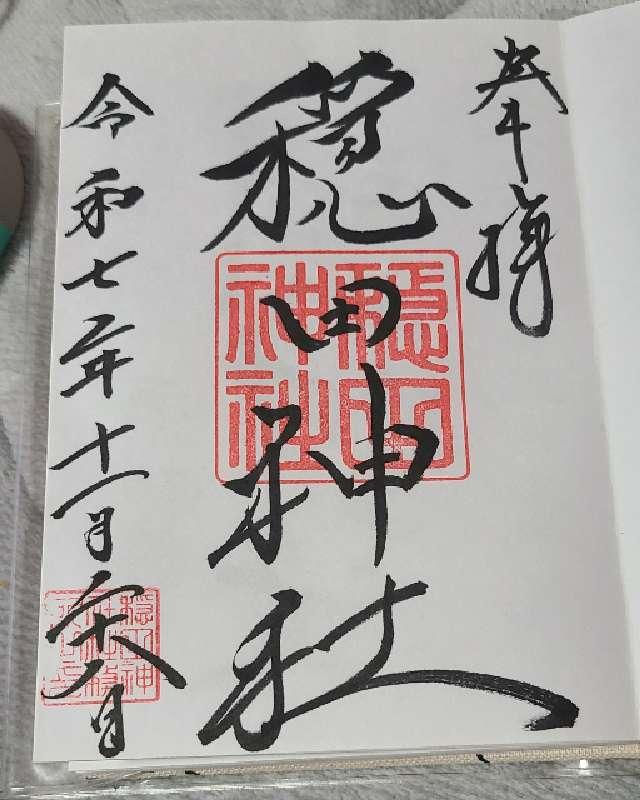 奉拝
穏田神社
穏田神社
令和七年十一月零八日